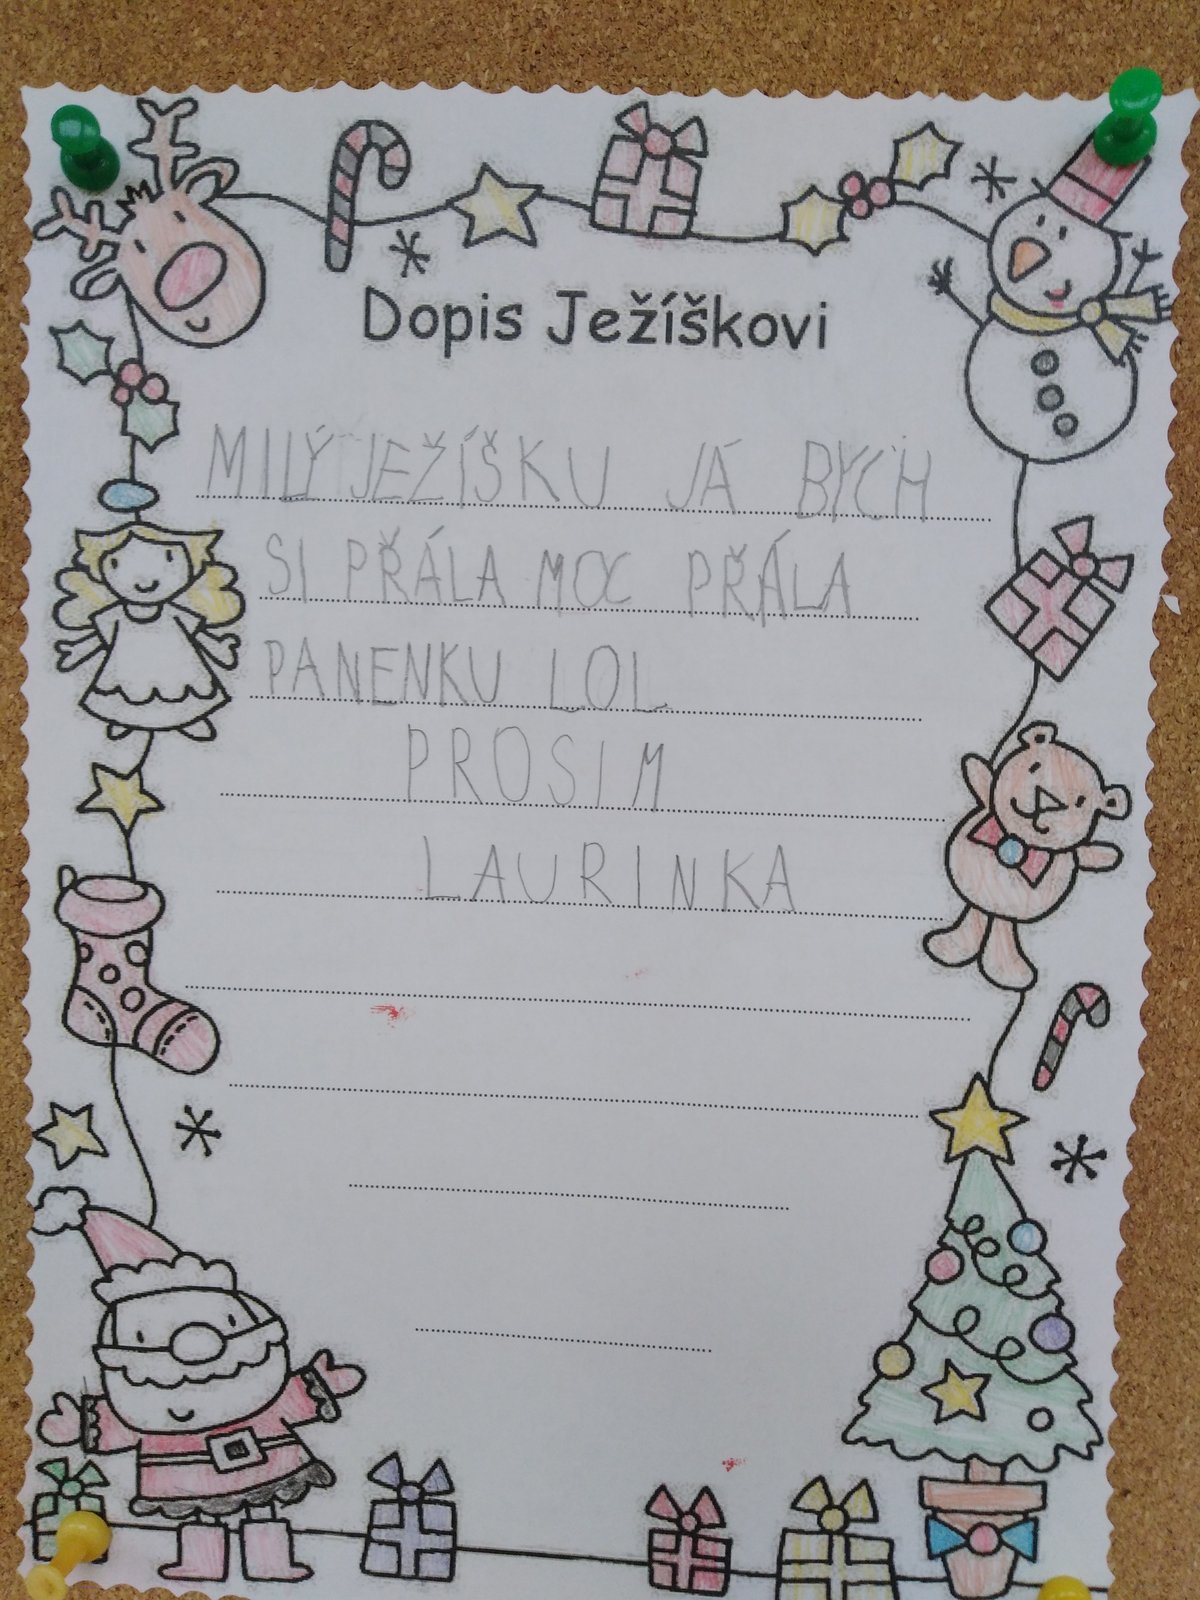 Dopis Ježíškovi
MILÝ JEŽÍŠKU JÁ BYCH
SI PŘÁLA MOC PŘÁLA
PANENKU LOL
PROSIM
LAURINKA